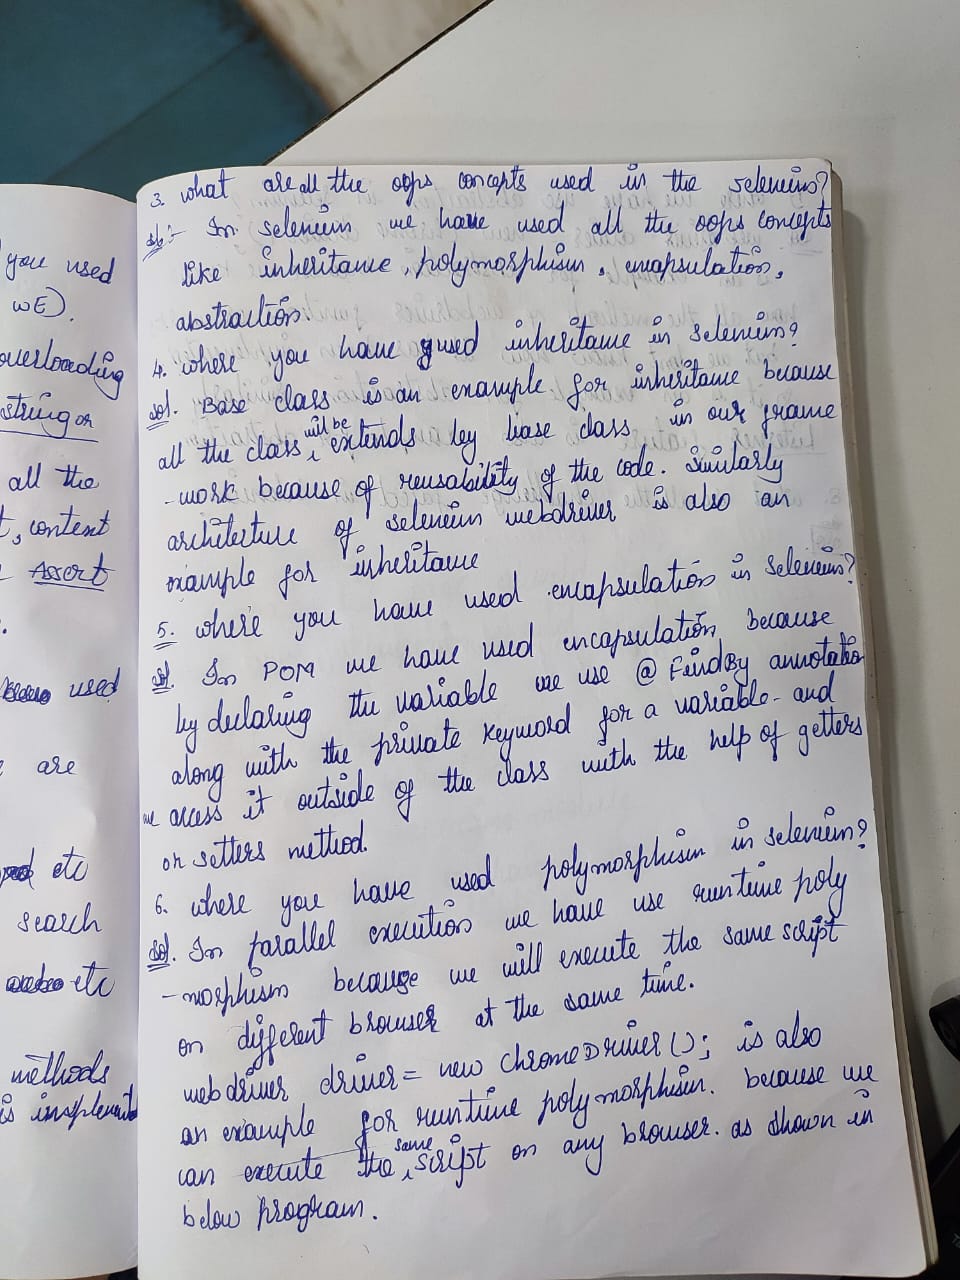 you used
WE).
overloading
string or
all the
t, content
Assert
used
are
etc
search
etc
methods
is implement
3. what are all the oops concepts used in the selenium?
Sol:- In selenium we have used all the oops concepts
like inheritance, polymorphism, encapsulation,
abstraction.
4. where you have used inheritance in selenium?
Sol. Base class is an example for inheritance because
all the class will be extends by base class in our frame
-work because of reusability of the code. Similarly
architecture of selenium webdriver is also an
example for inheritance
5. where you have used encapsulation in selenium?
Sol. In POM we have used encapsulation because
by declaring the variable we use @FindBy annotation
along with the private keyword for a variable and
we access it outside of the class with the help of getters
or setters method.
6. where you have used polymorphism in selenium?
Sol. In parallel execution we have use runtime poly
-morphism because we will execute the same script
on different browser at the same time.
webdriver driver = new ChromeDriver(); is also
an example for runtime polymorphism. because we
can execute the same script on any browser. as shown in
below program.